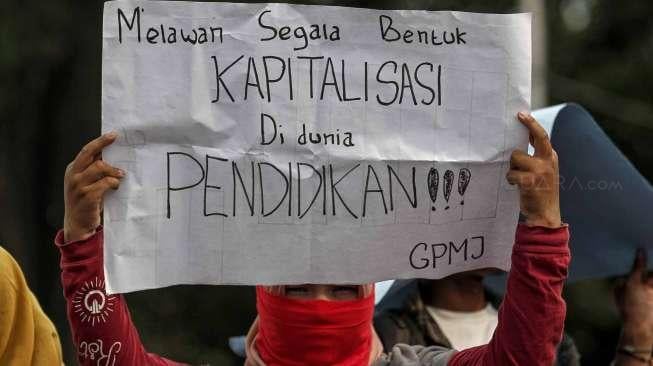 Melawan Segala Bentuk
KAPITALISASI
Di dunia
PENDIDIKAN!!!
GPMJ